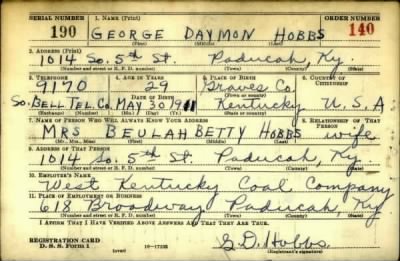 SERIAL NUMBER 1. NAME (Print) ORDER NUMBER
190 GEORGE DAYMON HOBBS 140
(First) (Middle) (Last)
2. ADDRESS (Print)
1014 So. 5th St. Paducah, Ky.
(Number and street or R. F. D. number) (Town) (County) (State)
3. TELEPHONE 4. AGE IN YEARS 5. PLACE OF BIRTH 6. COUNTRY OF CITIZENSHIP
9170 29 Graves Co.
DATE OF BIRTH (Town or county)
So. BELL TEL. Co. MAY 30 1911 Kentucky U.S.A.
(Exchange) (Number) (Mo.) (Day) (Yr.) (State or country)
7. NAME OF PERSON WHO WILL ALWAYS KNOW YOUR ADDRESS 8. RELATIONSHIP OF THAT PERSON
MRS BEULAH BETTY HOBBS wife
(Mr., Mrs., Miss) (First) (Middle) (Last)
9. ADDRESS OF THAT PERSON
1014 So. 5th St. Paducah, Ky
(Number and street or R. F. D. number) (Town) (County) (State)
10. EMPLOYER'S NAME
West Kentucky Coal Company
11. PLACE OF EMPLOYMENT OR BUSINESS
618 Broadway Paducah, Ky
(Number and street or R. F. D. number) (Town) (County) (State)
I AFFIRM THAT I HAVE VERIFIED ABOVE ANSWERS AND THAT THEY ARE TRUE.
REGISTRATION CARD
D. S. S. Form 1 (over) 16—17105 G. D. Hobbs
(Registrant's signature)